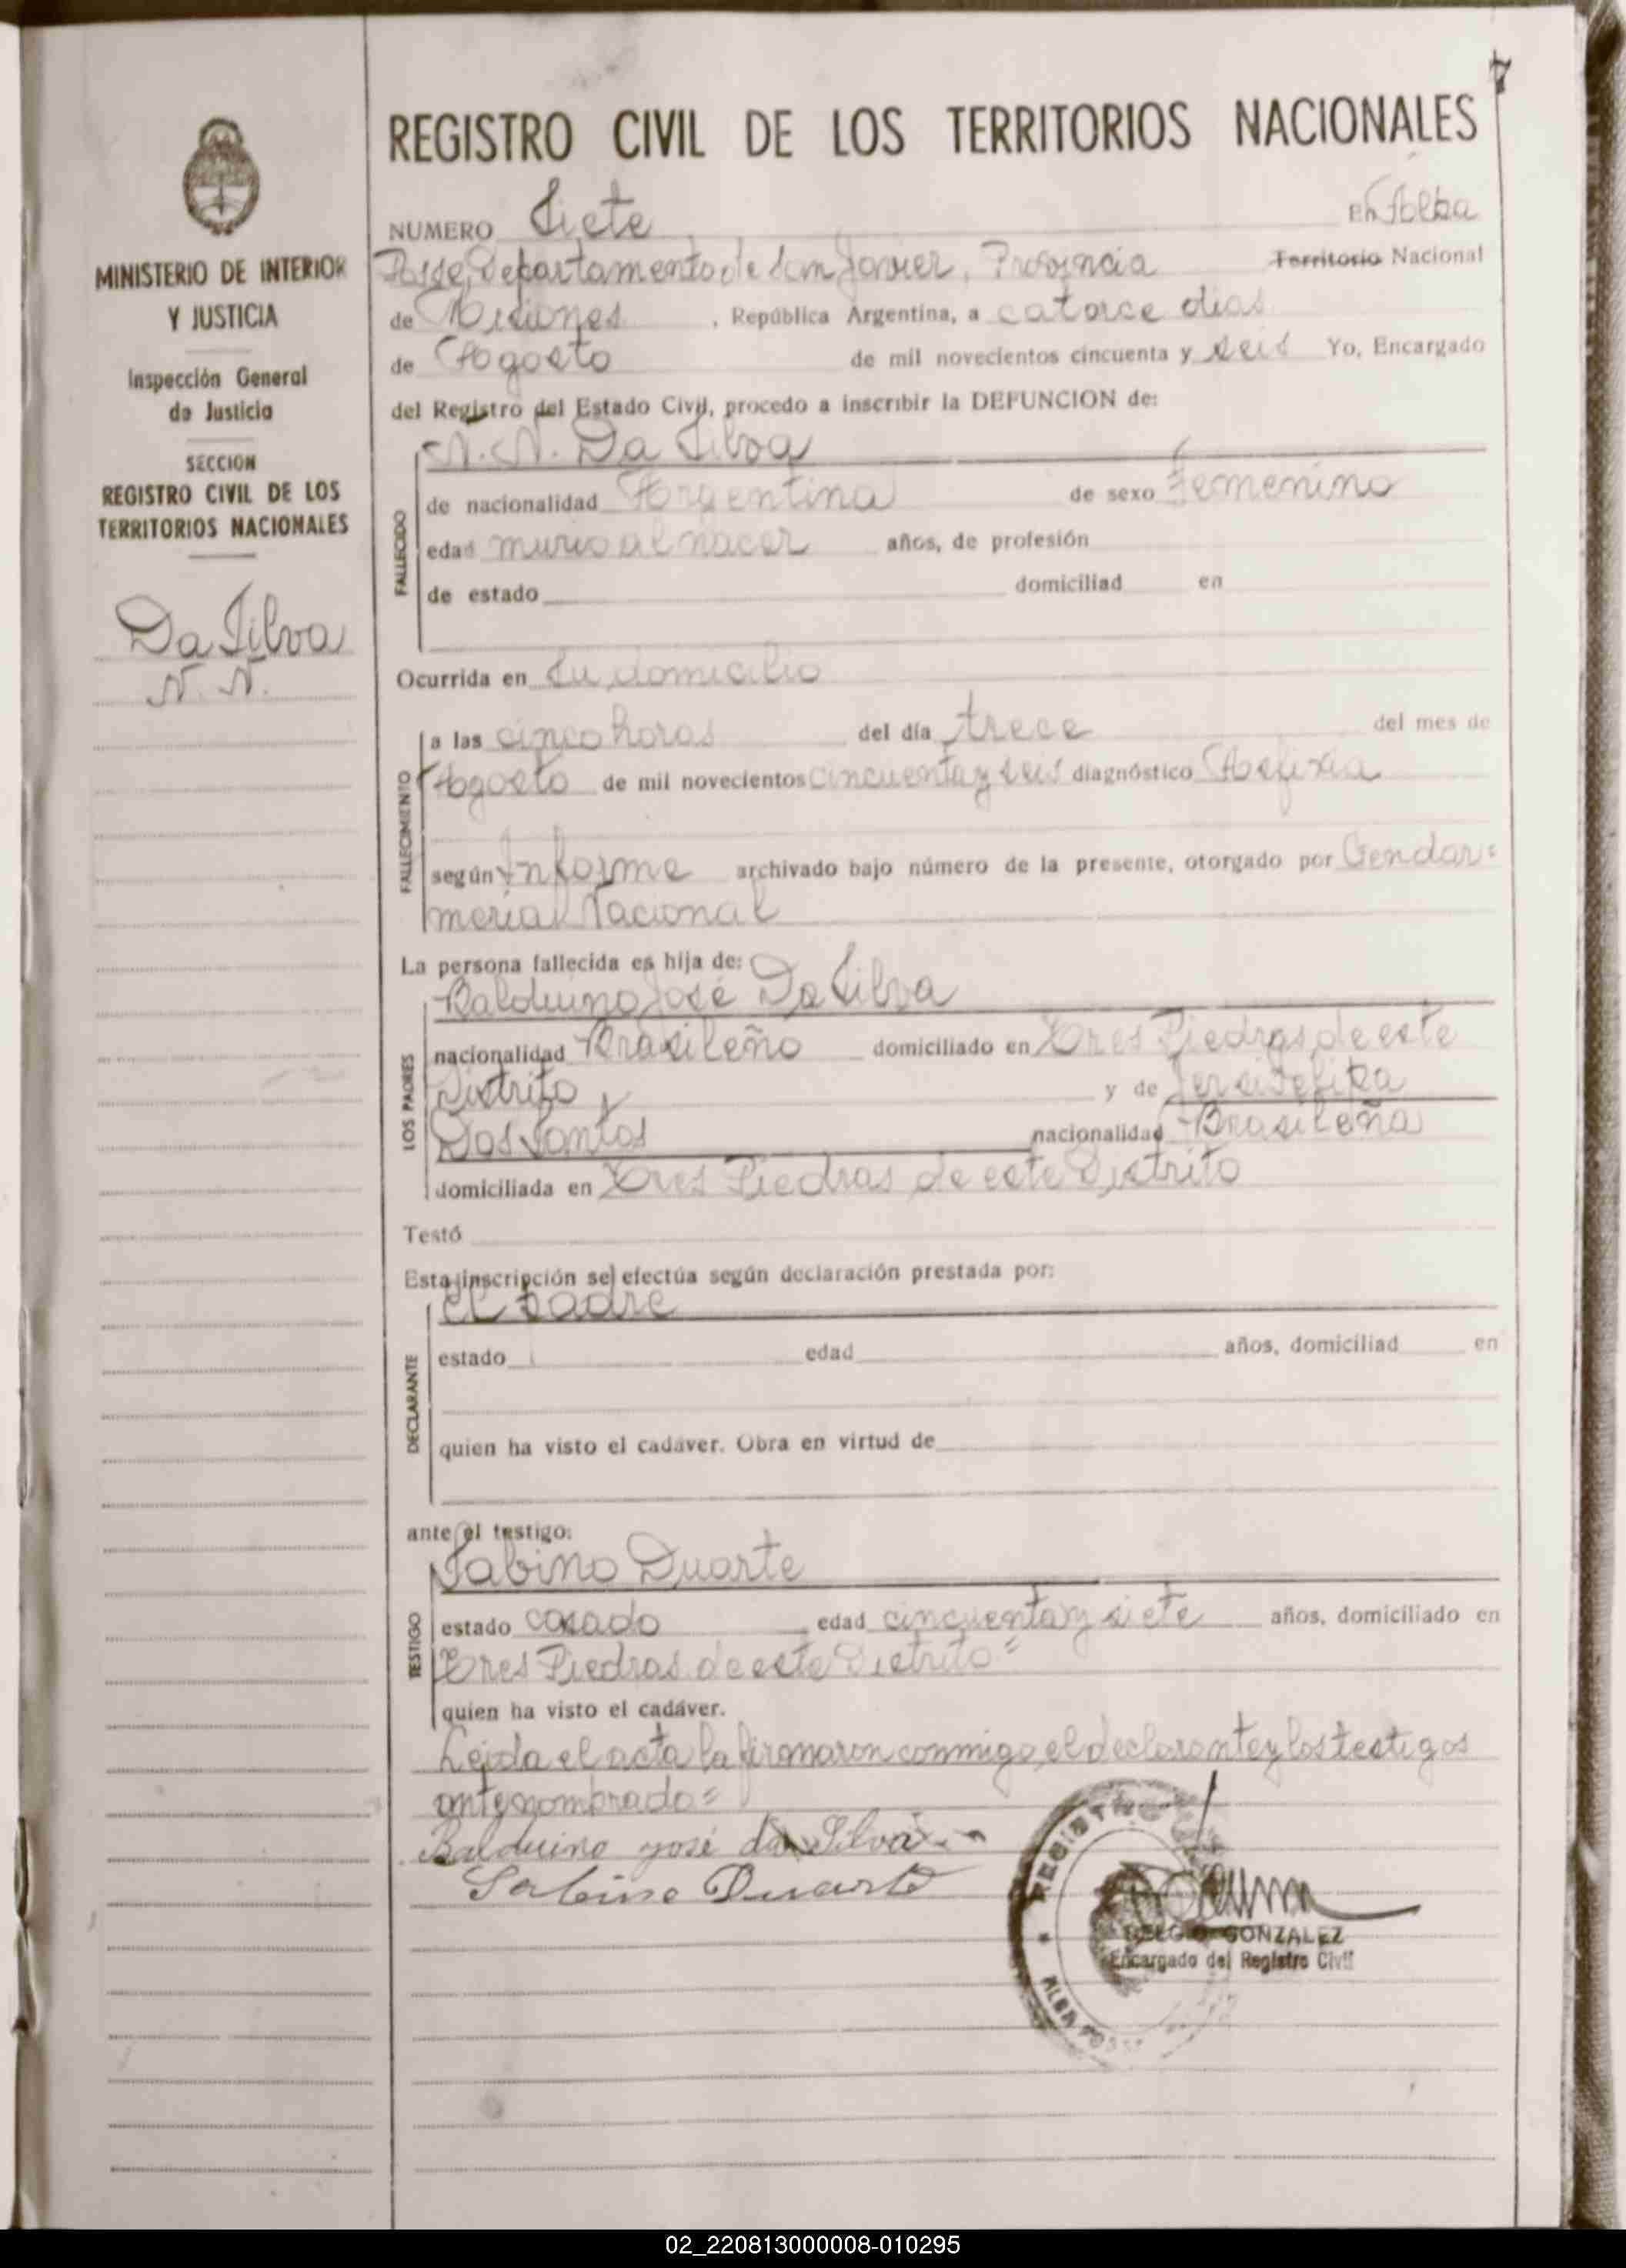 7
REGISTRO CIVIL DE LOS TERRITORIOS NACIONALES
MINISTERIO DE INTERIOR
Y JUSTICIA
Inspección General
de Justicia
SECCION
REGISTRO CIVIL DE LOS
TERRITORIOS NACIONALES
Da Silva
N. N.
NUMERO Siete En Alba
Posse, Departamento de San Javier, Provincia Territorio Nacional
de Misiones, República Argentina, a catorce dias
de Agosto de mil novecientos cincuenta y seis Yo, Encargado
del Registro del Estado Civil, procedo a inscribir la DEFUNCION de:
FALLECIDO
N. N. Da Silva
de nacionalidad Argentina de sexo femenino
edad murio al nacer años, de profesión
de estado domiciliad en
Ocurrida en Su domicilio
FALLECIMIENTO
a las cinco horas del día trece del mes de
Agosto de mil novecientos cincuenta y seis diagnóstico Asfixia
según Informe archivado bajo número de la presente, otorgado por Gendar=
meria Nacional
La persona fallecida es hija de:
LOS PADRES
Balduino José Da Silva
nacionalidad Brasileño domiciliado en Tres Piedras de este
Distrito y de
Dos Santos nacionalidad Brasileña
domiciliada en Tres Piedras de este Distrito
Testó
Esta inscripción se efectúa según declaración prestada por:
DECLARANTE
el Padre
estado edad años, domiciliad en
quien ha visto el cadáver. Obra en virtud de
ante el testigo:
TESTIGO
Sabino Duarte
estado casado edad cincuenta y siete años, domiciliado en
Tres Piedras de este Distrito=
quien ha visto el cadáver.
Leida el acta la firmaron conmigo, el declarante y los testigos
antenombrado=
Balduino José da Silva
Sabino Duarte
REGISTRO
GONZALEZ
Encargado del Registro Civil
ALBA POSSE
02_220813000008-010295